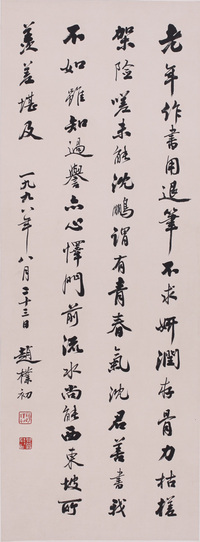 老年作書用退筆不求妍潤存骨力枯槎
架險嗟未能沈鵬謂有青春氣沈君善書我
不如雖知過譽亦心懌門前流水尚能西東坡所
羨差堪及
一九九八年八月二十三日
趙樸初